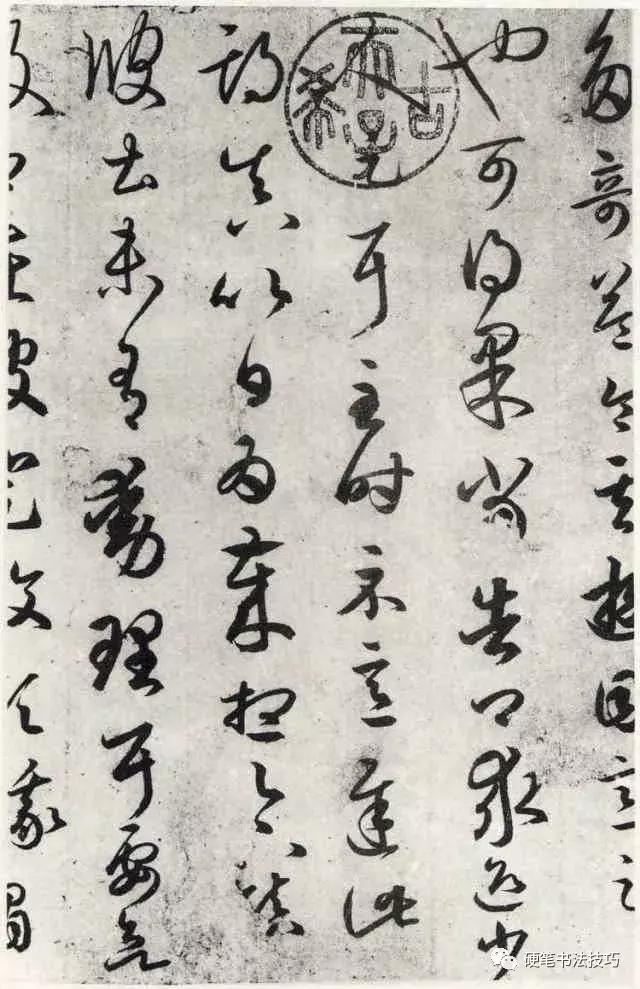 多奇益令其遊目意足
也可得果當告卿求迎少
人足耳至時示意遲此
期真以日為歲想足下鎮
彼土未有動理耳要欲
及卿在彼登汶領峨眉
古希天子
硬笔书法技巧